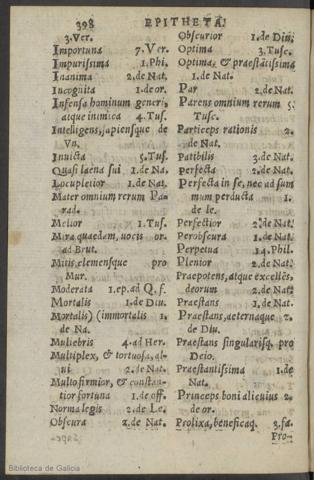 398 EPITHETA.
3. Ver.
Importuna 7. Ver.
Impurissima 1. Phi.
Inanima 2. de Nat.
Incognita 1. de or.
Infensa hominum generi,
atque inimica 4. Tusc.
Intelligens, sapiensque de
Vn.
Inuicta 5. Tus.
Quasi laena sui 1. de Na.
Locupletior 1. de Nat.
Mater omnium rerum Pa-
rad.
Melior 1. Tus.
Mira quaedam, uocis or.
ad Brut.
Mitis, clemensque pro
Mur.
Moderata 1. ep. ad Q. f.
Mortalis 1. de Diu.
Mortalis) (immortalis 1.
de Na.
Muliebris 4. ad Her.
Multiplex, & tortuosa, al-
ui 2. de Nat.
Multo firmior, & constan-
tior fortuna 1. de off.
Norma legis 2. de Le.
Obscura 2. de Nat.
Obscurior 1. de Diu.
Optima 3. Tusc.
Optima, & praestātissima
1. de Nat.
Par 1. de Nat.
Parens omnium rerum 5.
Tusc.
Particeps rationis 2.
de Nat.
Patibilis 3. de Nat.
Perfecta 2. de Nat.
Perfecta in se, nec ad sum
mum perducta 1.
de le.
Perfectior 2. de Nat.
Perobscura 1. de Nat.
Perpetua 14. Phil.
Plenior 2. de Nat.
Praepotens, atque excellēs,
deorum 2. de Nat.
Praestans 1. de Nat.
Praestans, aeternaque 2.
de Diu.
Praestans singularisq́, pro
Deio.
Praestantissima 1. de
Nat.
Princeps boni alicuius 2.
de or.
Prolixa, beneficaq́. 3. fa.
Pro-
Biblioteca de Galicia